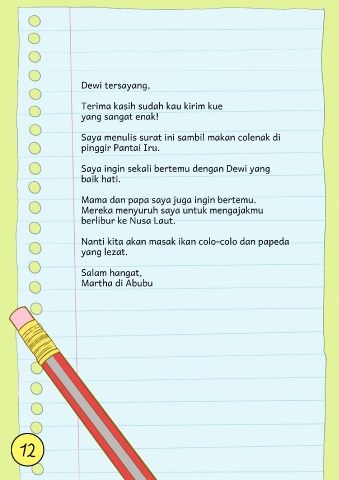 Dewi tersayang,
Terima kasih sudah kau kirim kue
yang sangat enak!
Saya menulis surat ini sambil makan colenak di
pinggir Pantai Iru.
Saya ingin sekali bertemu dengan Dewi yang
baik hati.
Mama dan papa saya juga ingin bertemu.
Mereka menyuruh saya untuk mengajakmu
berlibur ke Nusa Laut.
Nanti kita akan masak ikan colo-colo dan papeda
yang lezat.
Salam hangat,
Martha di Abubu
12